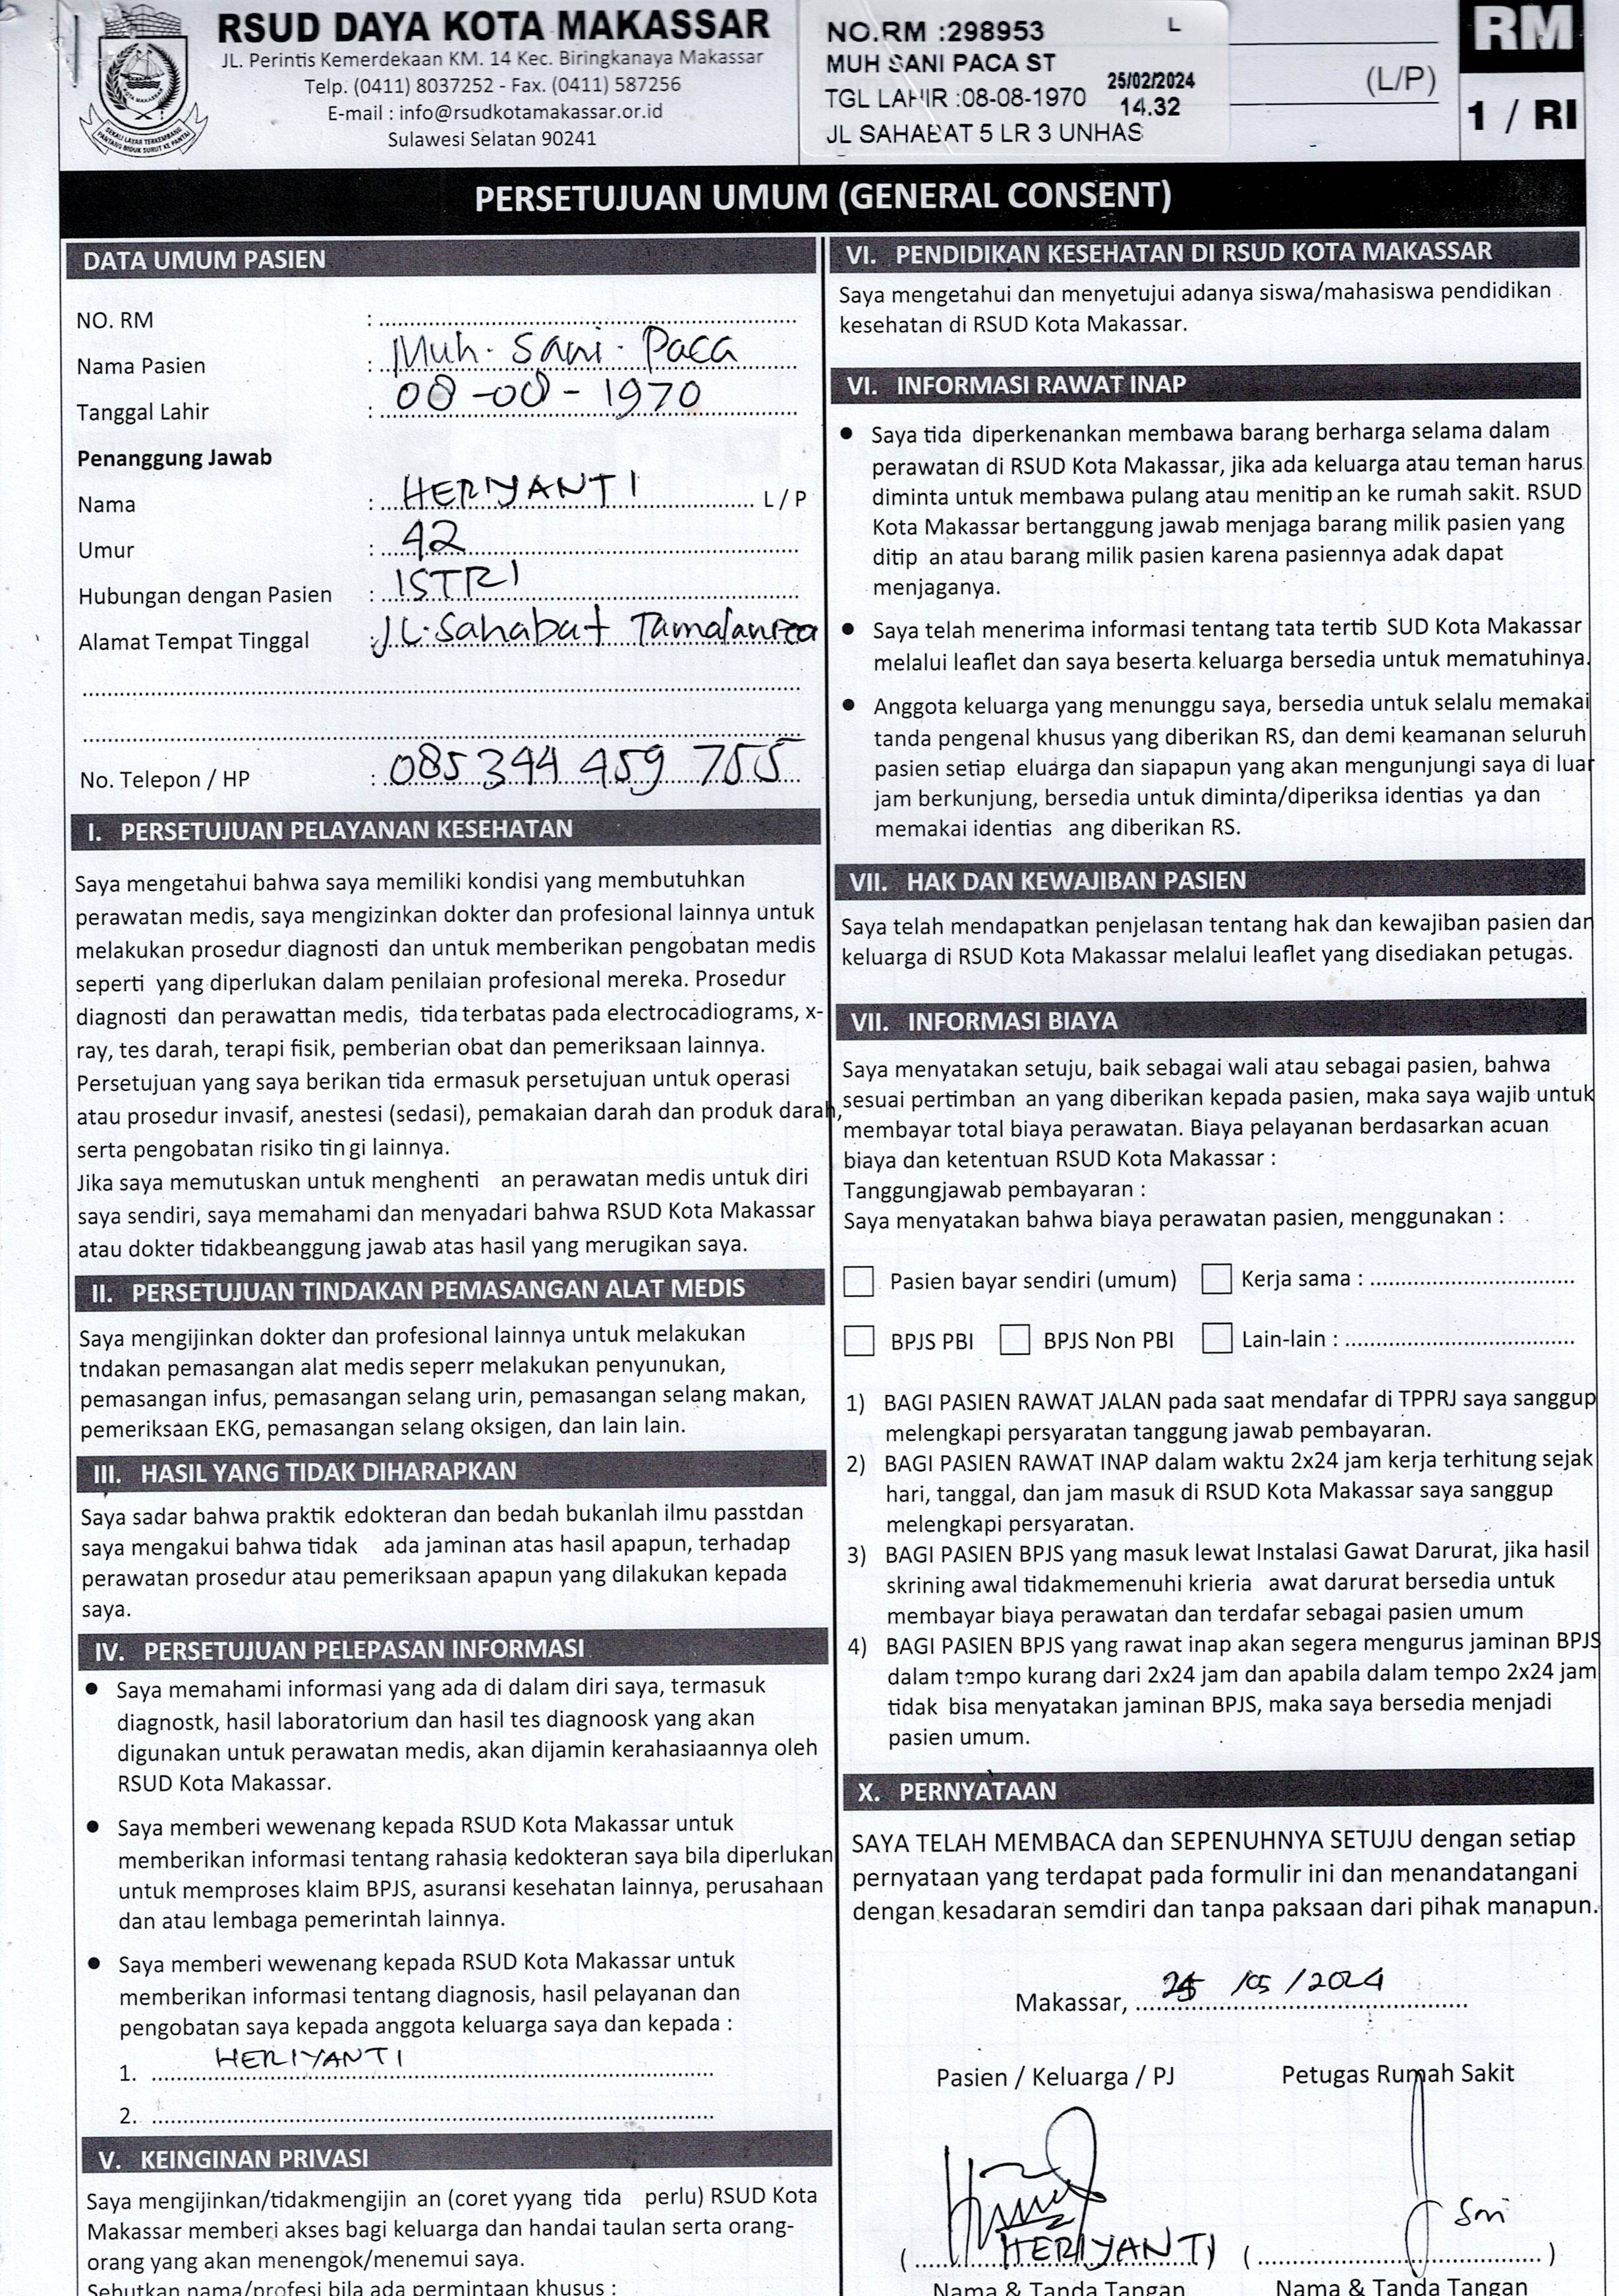 RSUD DAYA KOTA MAKASSAR
JL. Perintis Kemerdekaan KM. 14 Kec. Biringkanaya Makassar
Telp. (0411) 8037252 - Fax. (0411) 587256
E-mail : info@rsudkotamakassar.or.id
Sulawesi Selatan 90241
NO.RM :298953 L
MUH SANI PACA ST
TGL LAHIR :08-08-1970 25/02/2024
14.32
JL SAHABAT 5 LR 3 UNHAS
(L/P)
RM
1 / RI
PERSETUJUAN UMUM (GENERAL CONSENT)
DATA UMUM PASIEN
NO. RM :
Nama Pasien : Muh. Sani. Paca
Tanggal Lahir : 08-08-1970
Penanggung Jawab
Nama : HERIYANTI L / P
Umur : 42
Hubungan dengan Pasien : ISTRI
Alamat Tempat Tinggal : JL. Sahabat Tamalanrea
No. Telepon / HP : 085 344 459 755
I. PERSETUJUAN PELAYANAN KESEHATAN
Saya mengetahui bahwa saya memiliki kondisi yang membutuhkan
perawatan medis, saya mengizinkan dokter dan profesional lainnya untuk
melakukan prosedur diagnosti dan untuk memberikan pengobatan medis
seperti yang diperlukan dalam penilaian profesional mereka. Prosedur
diagnosti dan perawattan medis, tida terbatas pada electrocadiograms, x-
ray, tes darah, terapi fisik, pemberian obat dan pemeriksaan lainnya.
Persetujuan yang saya berikan tida ermasuk persetujuan untuk operasi
atau prosedur invasif, anestesi (sedasi), pemakaian darah dan produk darah,
serta pengobatan risiko tin gi lainnya.
Jika saya memutuskan untuk menghenti an perawatan medis untuk diri
saya sendiri, saya memahami dan menyadari bahwa RSUD Kota Makassar
atau dokter tidakbeanggung jawab atas hasil yang merugikan saya.
II. PERSETUJUAN TINDAKAN PEMASANGAN ALAT MEDIS
Saya mengijinkan dokter dan profesional lainnya untuk melakukan
tndakan pemasangan alat medis seperr melakukan penyunukan,
pemasangan infus, pemasangan selang urin, pemasangan selang makan,
pemeriksaan EKG, pemasangan selang oksigen, dan lain lain.
III. HASIL YANG TIDAK DIHARAPKAN
Saya sadar bahwa praktik edokteran dan bedah bukanlah ilmu passtdan
saya mengakui bahwa tidak ada jaminan atas hasil apapun, terhadap
perawatan prosedur atau pemeriksaan apapun yang dilakukan kepada
saya.
IV. PERSETUJUAN PELEPASAN INFORMASI
● Saya memahami informasi yang ada di dalam diri saya, termasuk
diagnostk, hasil laboratorium dan hasil tes diagnoosk yang akan
digunakan untuk perawatan medis, akan dijamin kerahasiaannya oleh
RSUD Kota Makassar.
● Saya memberi wewenang kepada RSUD Kota Makassar untuk
memberikan informasi tentang rahasia kedokteran saya bila diperlukan
untuk memproses klaim BPJS, asuransi kesehatan lainnya, perusahaan
dan atau lembaga pemerintah lainnya.
● Saya memberi wewenang kepada RSUD Kota Makassar untuk
memberikan informasi tentang diagnosis, hasil pelayanan dan
pengobatan saya kepada anggota keluarga saya dan kepada :
1. HERIYANTI
2.
V. KEINGINAN PRIVASI
Saya mengijinkan/tidakmengijin an (coret yyang tida perlu) RSUD Kota
Makassar memberi akses bagi keluarga dan handai taulan serta orang-
orang yang akan menengok/menemui saya.
Sebutkan nama/profesi bila ada permintaan khusus :
VI. PENDIDIKAN KESEHATAN DI RSUD KOTA MAKASSAR
Saya mengetahui dan menyetujui adanya siswa/mahasiswa pendidikan
kesehatan di RSUD Kota Makassar.
VI. INFORMASI RAWAT INAP
● Saya tida diperkenankan membawa barang berharga selama dalam
perawatan di RSUD Kota Makassar, jika ada keluarga atau teman harus
diminta untuk membawa pulang atau menitip an ke rumah sakit. RSUD
Kota Makassar bertanggung jawab menjaga barang milik pasien yang
ditip an atau barang milik pasien karena pasiennya adak dapat
menjaganya.
● Saya telah menerima informasi tentang tata tertib SUD Kota Makassar
melalui leaflet dan saya beserta keluarga bersedia untuk mematuhinya.
● Anggota keluarga yang menunggu saya, bersedia untuk selalu memakai
tanda pengenal khusus yang diberikan RS, dan demi keamanan seluruh
pasien setiap eluarga dan siapapun yang akan mengunjungi saya di luar
jam berkunjung, bersedia untuk diminta/diperiksa identias ya dan
memakai identias ang diberikan RS.
VII. HAK DAN KEWAJIBAN PASIEN
Saya telah mendapatkan penjelasan tentang hak dan kewajiban pasien dan
keluarga di RSUD Kota Makassar melalui leaflet yang disediakan petugas.
VII. INFORMASI BIAYA
Saya menyatakan setuju, baik sebagai wali atau sebagai pasien, bahwa
sesuai pertimban an yang diberikan kepada pasien, maka saya wajib untuk
membayar total biaya perawatan. Biaya pelayanan berdasarkan acuan
biaya dan ketentuan RSUD Kota Makassar :
Tanggungjawab pembayaran :
Saya menyatakan bahwa biaya perawatan pasien, menggunakan :
Pasien bayar sendiri (umum) Kerja sama :
BPJS PBI BPJS Non PBI Lain-lain :
1) BAGI PASIEN RAWAT JALAN pada saat mendafar di TPPRJ saya sanggup
melengkapi persyaratan tanggung jawab pembayaran.
2) BAGI PASIEN RAWAT INAP dalam waktu 2x24 jam kerja terhitung sejak
hari, tanggal, dan jam masuk di RSUD Kota Makassar saya sanggup
melengkapi persyaratan.
3) BAGI PASIEN BPJS yang masuk lewat Instalasi Gawat Darurat, jika hasil
skrining awal tidakmemenuhi krieria awat darurat bersedia untuk
membayar biaya perawatan dan terdafar sebagai pasien umum
4) BAGI PASIEN BPJS yang rawat inap akan segera mengurus jaminan BPJS
dalam tempo kurang dari 2x24 jam dan apabila dalam tempo 2x24 jam
tidak bisa menyatakan jaminan BPJS, maka saya bersedia menjadi
pasien umum.
X. PERNYATAAN
SAYA TELAH MEMBACA dan SEPENUHNYA SETUJU dengan setiap
pernyataan yang terdapat pada formulir ini dan menandatangani
dengan kesadaran semdiri dan tanpa paksaan dari pihak manapun.
Makassar, /05/2024
Pasien / Keluarga / PJ Petugas Rumah Sakit
Sri
(HERIYANTI) ( )
Nama & Tanda Tangan Nama & Tanda Tangan